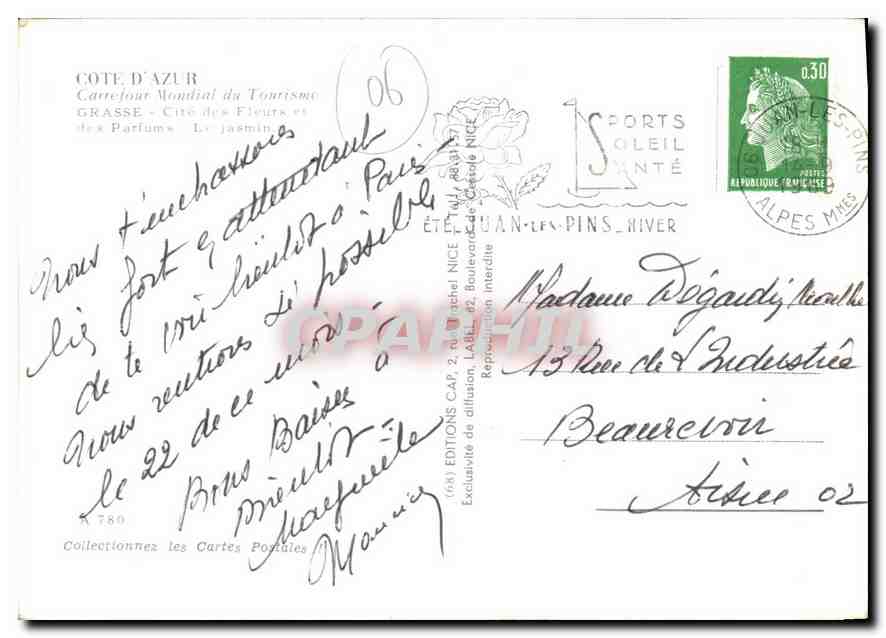 COTE D'AZUR
Carrefour Mondial du Tourisme
GRASSE - Cité des Fleurs et
des Parfums. Le jasmin.
06
Nous t'embrassons
bien fort en attendant
de te voir bientôt à Paris
nous rentrons si possible
le 22 de ce mois -
Bons Baisers à
Bientôt -
Marguerite
Maurice
A 780
Collectionnez les Cartes Postales !
(68) EDITIONS CAP, 2, rue Rachel NICE Tél.: 88.31.57
Exclusivité de diffusion, LABEL, 62, Boulevard de Cessole NICE
Reproduction Interdite
CPAPHIL
SPORTS
SOLEIL
SANTÉ
ÉTÉ JUAN-LES-PINS - HIVER
06 JUAN-LES-PINS
1969
ALPES Mmes
0,30
POSTES
REPUBLIQUE FRANÇAISE
Madame Dégardin
13 Rue de L'Industrie
Beaurevoir
Aisne 02